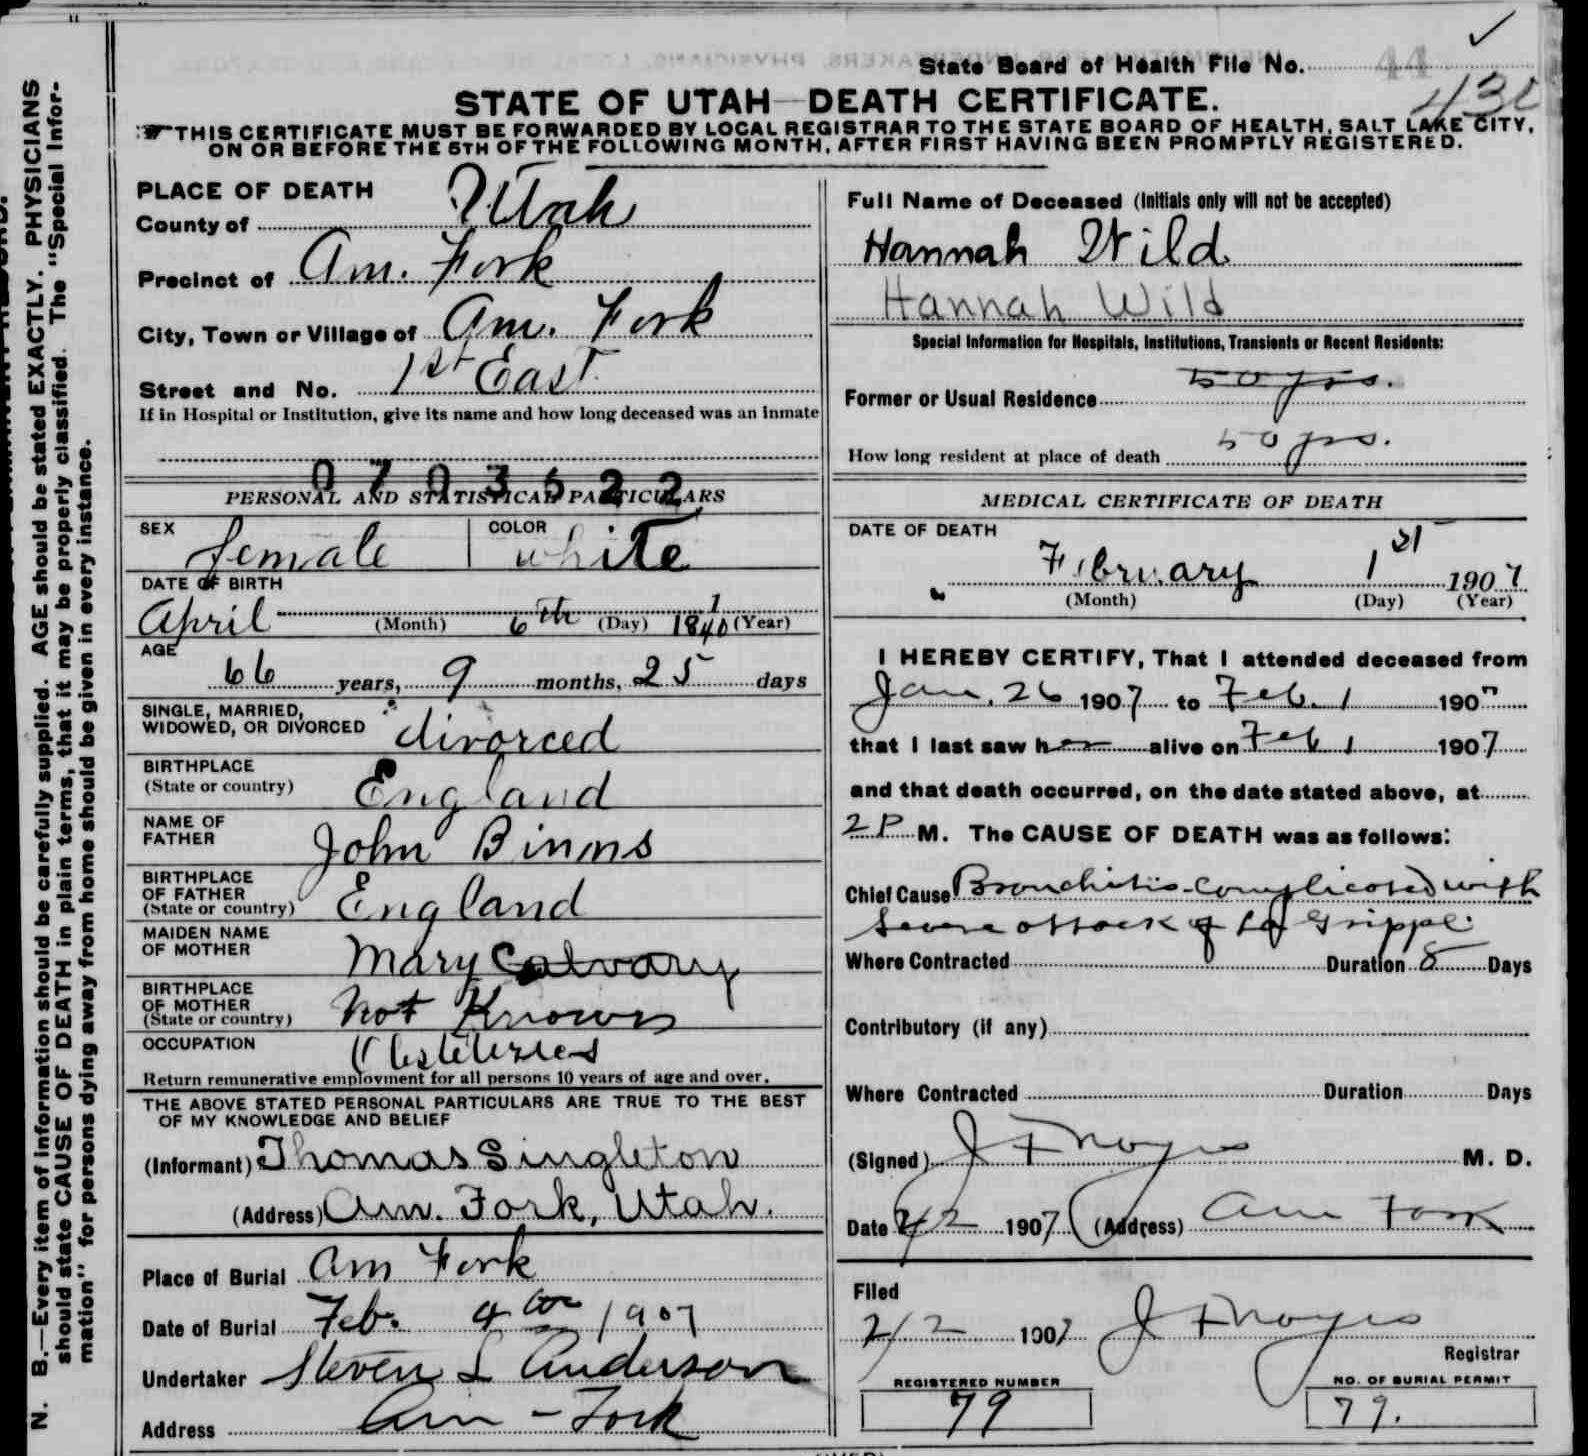 State Board of Health File No.
44
430
STATE OF UTAH—DEATH CERTIFICATE.
THIS CERTIFICATE MUST BE FORWARDED BY LOCAL REGISTRAR TO THE STATE BOARD OF HEALTH, SALT LAKE CITY,
ON OR BEFORE THE 5TH OF THE FOLLOWING MONTH, AFTER FIRST HAVING BEEN PROMPTLY REGISTERED.
N. B.—Every item of information should be carefully supplied. AGE should be stated EXACTLY. PHYSICIANS
should state CAUSE OF DEATH in plain terms, that it may be properly classified. The "Special Infor-
mation" for persons dying away from home should be given in every instance.
PLACE OF DEATH
County of Utah
Precinct of Am. Fork
City, Town or Village of Am. Fork
Street and No. 1st East
If in Hospital or Institution, give its name and how long deceased was an inmate
0703622
PERSONAL AND STATISTICAL PARTICULARS
SEX female COLOR white
DATE OF BIRTH
April (Month) 6th (Day) 1840 1 (Year)
AGE
66 years, 9 months, 25 days
SINGLE, MARRIED,
WIDOWED, OR DIVORCED divorced
BIRTHPLACE
(State or country) England
NAME OF
FATHER John Binns
BIRTHPLACE
OF FATHER
(State or country) England
MAIDEN NAME
OF MOTHER Mary Calvary
BIRTHPLACE
OF MOTHER
(State or country) Not Known
OCCUPATION Obstetrics
Return remunerative employment for all persons 10 years of age and over.
THE ABOVE STATED PERSONAL PARTICULARS ARE TRUE TO THE BEST
OF MY KNOWLEDGE AND BELIEF
(Informant) Thomas Singleton
(Address) Am. Fork, Utah.
Place of Burial Am Fork
Date of Burial Feb. 4th 1907
Undertaker Steven L Anderson
Address Am - Fork
Full Name of Deceased (Initials only will not be accepted)
Hannah Wild
Hannah Wild
Special Information for Hospitals, Institutions, Transients or Recent Residents:
Former or Usual Residence 50 yrs.
How long resident at place of death 50 yrs.
MEDICAL CERTIFICATE OF DEATH
DATE OF DEATH
February 1st 1907
(Month) (Day) (Year)
I HEREBY CERTIFY, That I attended deceased from
Jan. 26 1907 to Feb. 1 1907
that I last saw her alive on Feb 1 1907
and that death occurred, on the date stated above, at
2 P M. The CAUSE OF DEATH was as follows:
Chief Cause Bronchitis complicated with
severe attack of La Grippe
Where Contracted Duration 8 Days
Contributory (if any)
Where Contracted Duration Days
(Signed) J F Noyes M. D.
Date 2/2 1907 (Address) Am Fork
Filed
2/2 1907 J F Noyes
Registrar
REGISTERED NUMBER
79
NO. OF BURIAL PERMIT
79.